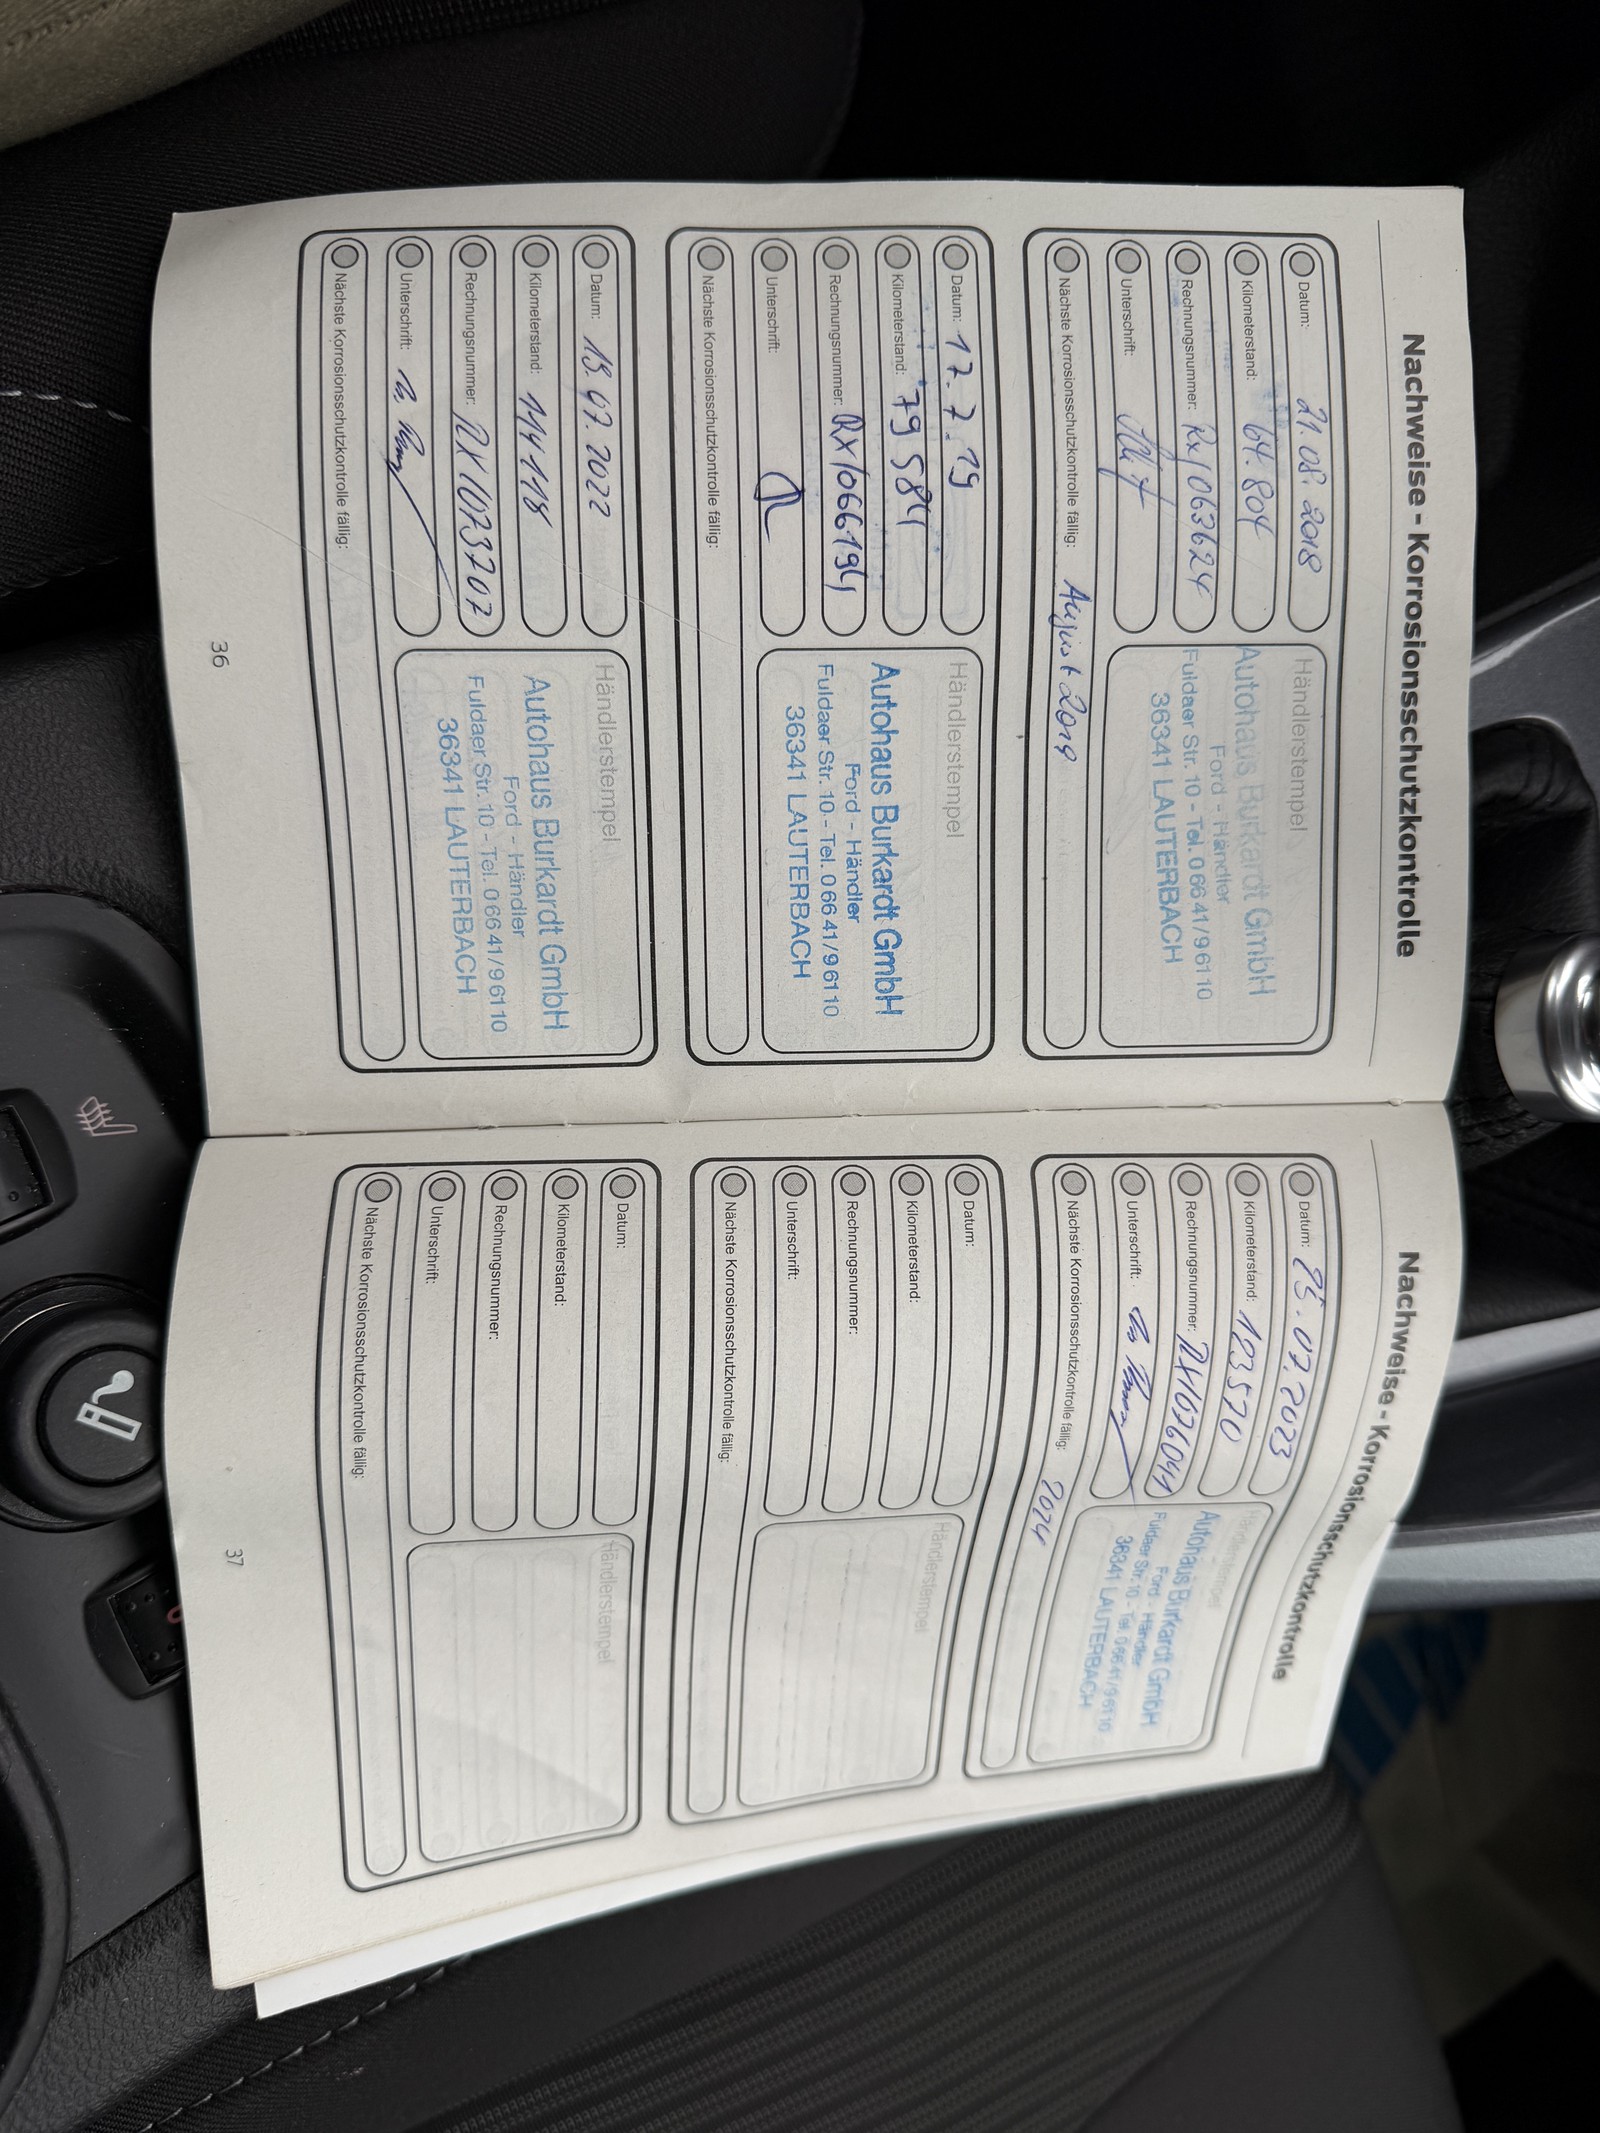 Nachweise - Korrosionsschutzkontrolle
Datum: 21.08.2018
Kilometerstand: 64.804
Rechnungsnummer: RX/063624
Unterschrift:
Nächste Korrosionsschutzkontrolle fällig: August 2019
Händlerstempel
Autohaus Burkardt GmbH
Ford - Händler
Fuldaer Str. 10 - Tel. 0 66 41/9 61 10
36341 LAUTERBACH
Datum: 17.7.19
Kilometerstand: 79584
Rechnungsnummer: RX/066194
Unterschrift:
Nächste Korrosionsschutzkontrolle fällig:
Händlerstempel
Autohaus Burkardt GmbH
Ford - Händler
Fuldaer Str. 10 - Tel. 0 66 41/9 61 10
36341 LAUTERBACH
Datum: 19.07.2022
Kilometerstand: 114118
Rechnungsnummer: RX1073707
Unterschrift:
Nächste Korrosionsschutzkontrolle fällig:
Händlerstempel
Autohaus Burkardt GmbH
Ford - Händler
Fuldaer Str. 10 - Tel. 0 66 41/9 61 10
36341 LAUTERBACH
36
Nachweise - Korrosionsschutzkontrolle
Datum: 25.07.2023
Kilometerstand: 123570
Rechnungsnummer: RX1076041
Unterschrift:
Nächste Korrosionsschutzkontrolle fällig: 2024
Händlerstempel
Autohaus Burkardt GmbH
Ford - Händler
Fuldaer Str. 10 - Tel. 0 66 41/9 61 10
36341 LAUTERBACH
Datum:
Kilometerstand:
Rechnungsnummer:
Unterschrift:
Nächste Korrosionsschutzkontrolle fällig:
Händlerstempel
Datum:
Kilometerstand:
Rechnungsnummer:
Unterschrift:
Nächste Korrosionsschutzkontrolle fällig:
Händlerstempel
37